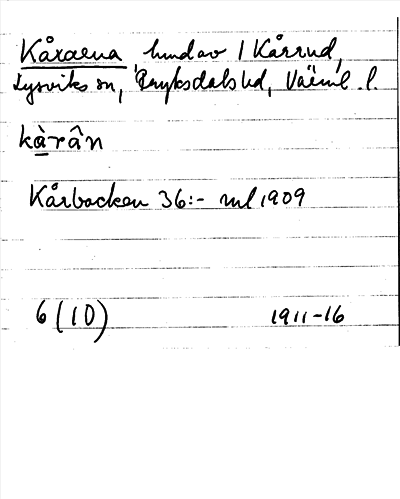 Kårarna, hmdav 1 Kårrud,
Lysviks sn, Fryksdals hd, Värml. l.
kàrân
Kårbacken 36:- ml 1909
6 (10) 1911-16